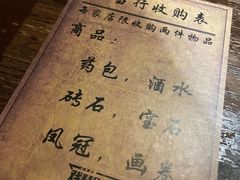 行收购表
每家店限收购两件物品
商品：
药包，酒水
砖石，宝石
凤冠，画卷